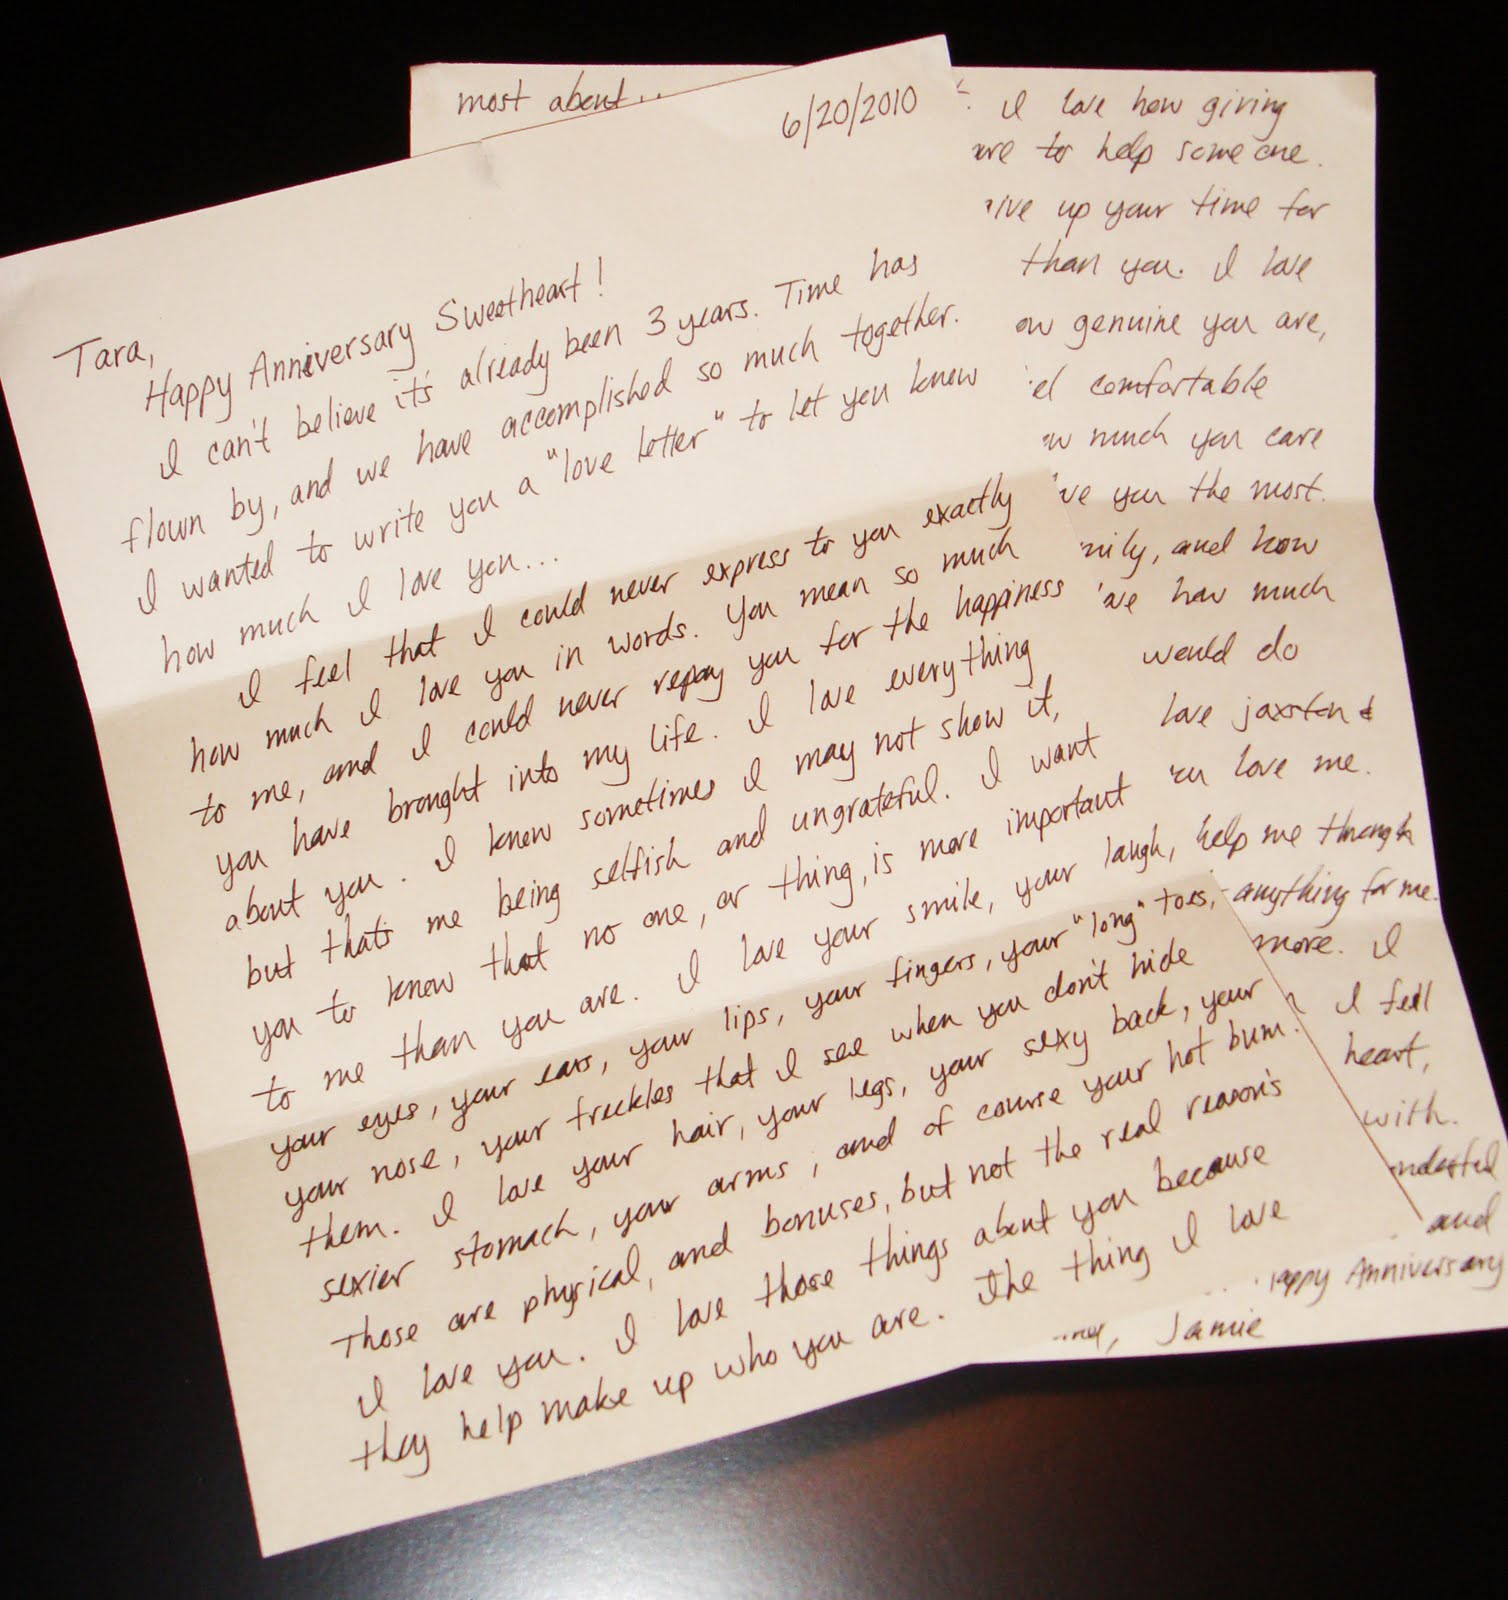 6/20/2010
Tara,
Happy Anniversary Sweetheart!
I can't believe it's already been 3 years. Time has
flown by, and we have accomplished so much together.
I wanted to write you a "love letter" to let you know
how much I love you...
I feel that I could never express to you exactly
how much I love you in words. You mean so much
to me, and I could never repay you for the happiness
you have brought into my life. I love everything
about you. I know sometimes I may not show it,
but thats me being selfish and ungrateful. I want
you to know that no one, or thing, is more important
to me than you are. I love your smile, your laugh,
your eyes, your ears, your lips, your fingers, your "long" toes,
your nose, your freckles that I see when you don't hide
them. I love your hair, your legs, your sexy back, your
sexier stomach, your arms, and of course your hot bum.
Those are physical, and bonuses, but not the real reason's
I love you. I love those things about you because
they help make up who you are. The thing I love
most about...
I love how giving
to help someone.
up your time for
than you. I love
genuine you are,
comfortable
much you care
you the most.
and how
how much
would do
love jaxston &
love me.
help me through
anything for me.
more. I
I feel
heart,
with.
and
Happy Anniversary
Jamie